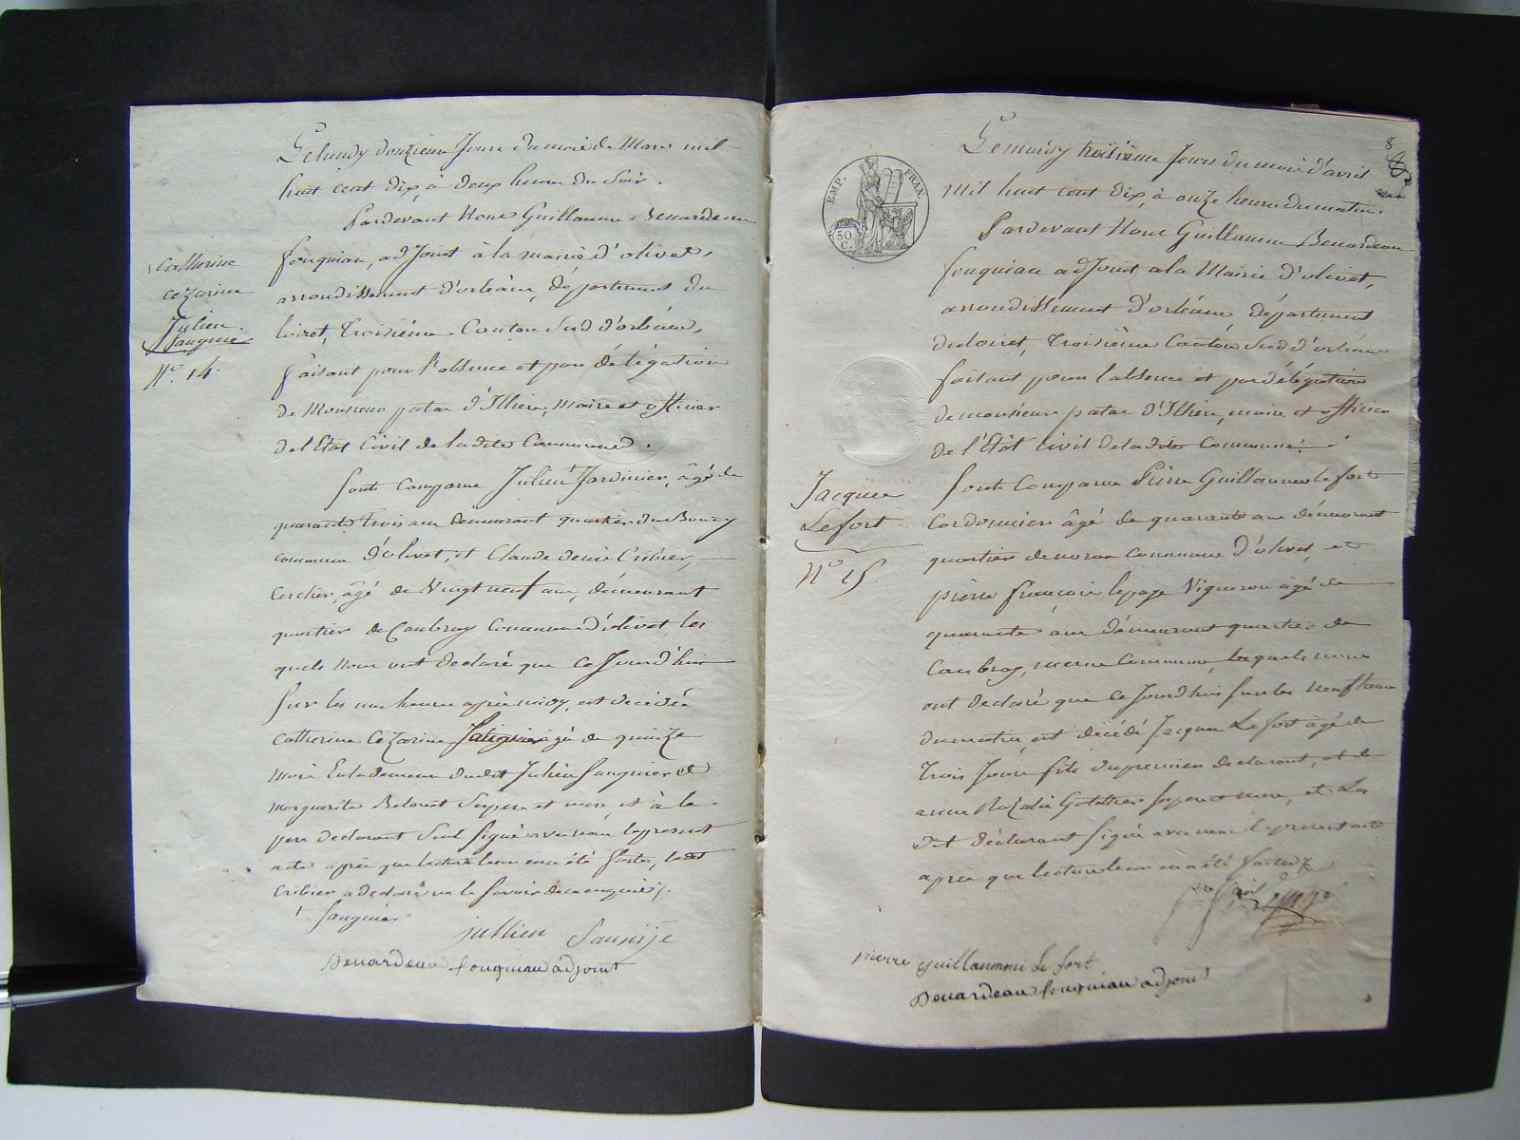 Le lundy douzieme Jour du mois de Mars mil
huit cent dix, à deux heure du Soir.
Pardevant Nous Guillaume Benardeau
fouqniau, adJoint à la mairie d'olivet,
arrondissement d'orléans, département du
loiret, troisième Canton Sud d'orléans,
faisant pour l'absence et par délégation
de Monsieur patas d'Illiers, Maire et officier
de l'Etat Civil de ladite Commune.
Catherine
cézarine
Julien
Saugnié
N.o 14.
Sont Comparus Julien Jardinier, âgé de
quarante trois ans demeurant quartier du Bourg
commune d'olivet, et Claude denis Cribier,
cerclier, âgé de Vingt neuf ans, demeurant
quartier de Caubray Commune d'olivet, les
quels Nous ont declaré que ce Jourd'hui
Sur les une heure après midy, est décédée
Catherine Cézarine agée de quinze
mois En la demeure dudit Julien Saugnier et
margueritte Ses pere et mere, et à le
pere declarant Seul Signé avec nous le present
acte après que lecture leur en a été faite, ledit
Cribier a declaré ne le Savoir de ce enquis ./.
† Saugnier
jullien Saunije
Benardeau fouqniau adjoint
8
EMP. FRAN.
50 C.
Le mardy troisième Jour du mois d'avril
Mil huit cent dix, à onze heure du matin.
Pardevant Nous Guillaume Benardeau
fouqniau adJoint a la Mairie d'olivet,
arrondissement d'orléans, département
du loiret, Troisième Canton Sud d'orléans
faisant pour l'absence et par délégation
de monsieur patas d'Illiers, maire et officier
de l'Etat Civil de ladite Commune.
Jacques
Lefort
N.o 15
Sont Comparus Pierre Guillaume Le fort
Cordonnier âgé de quarante ans demeurant
quartier de commune d'olivet, et
pierre françois lepage Vigneron âgé de
quarante ans demeurant quartier de
Caubray, même Commune, lesquels nous
ont declaré que ce Jourd'hui Sur les neuf heure
du matin, est décédé Jacques Lefort âgé de
Trois Jours fils du premier declarant, et de
anne Rozalie Ses pere et mere, et Les
dit déclarant Signé avec nous le present acte
apres que lecture leur en a été faite
pierre guillaumme Le fort
Benardeau fouqniau adjoint